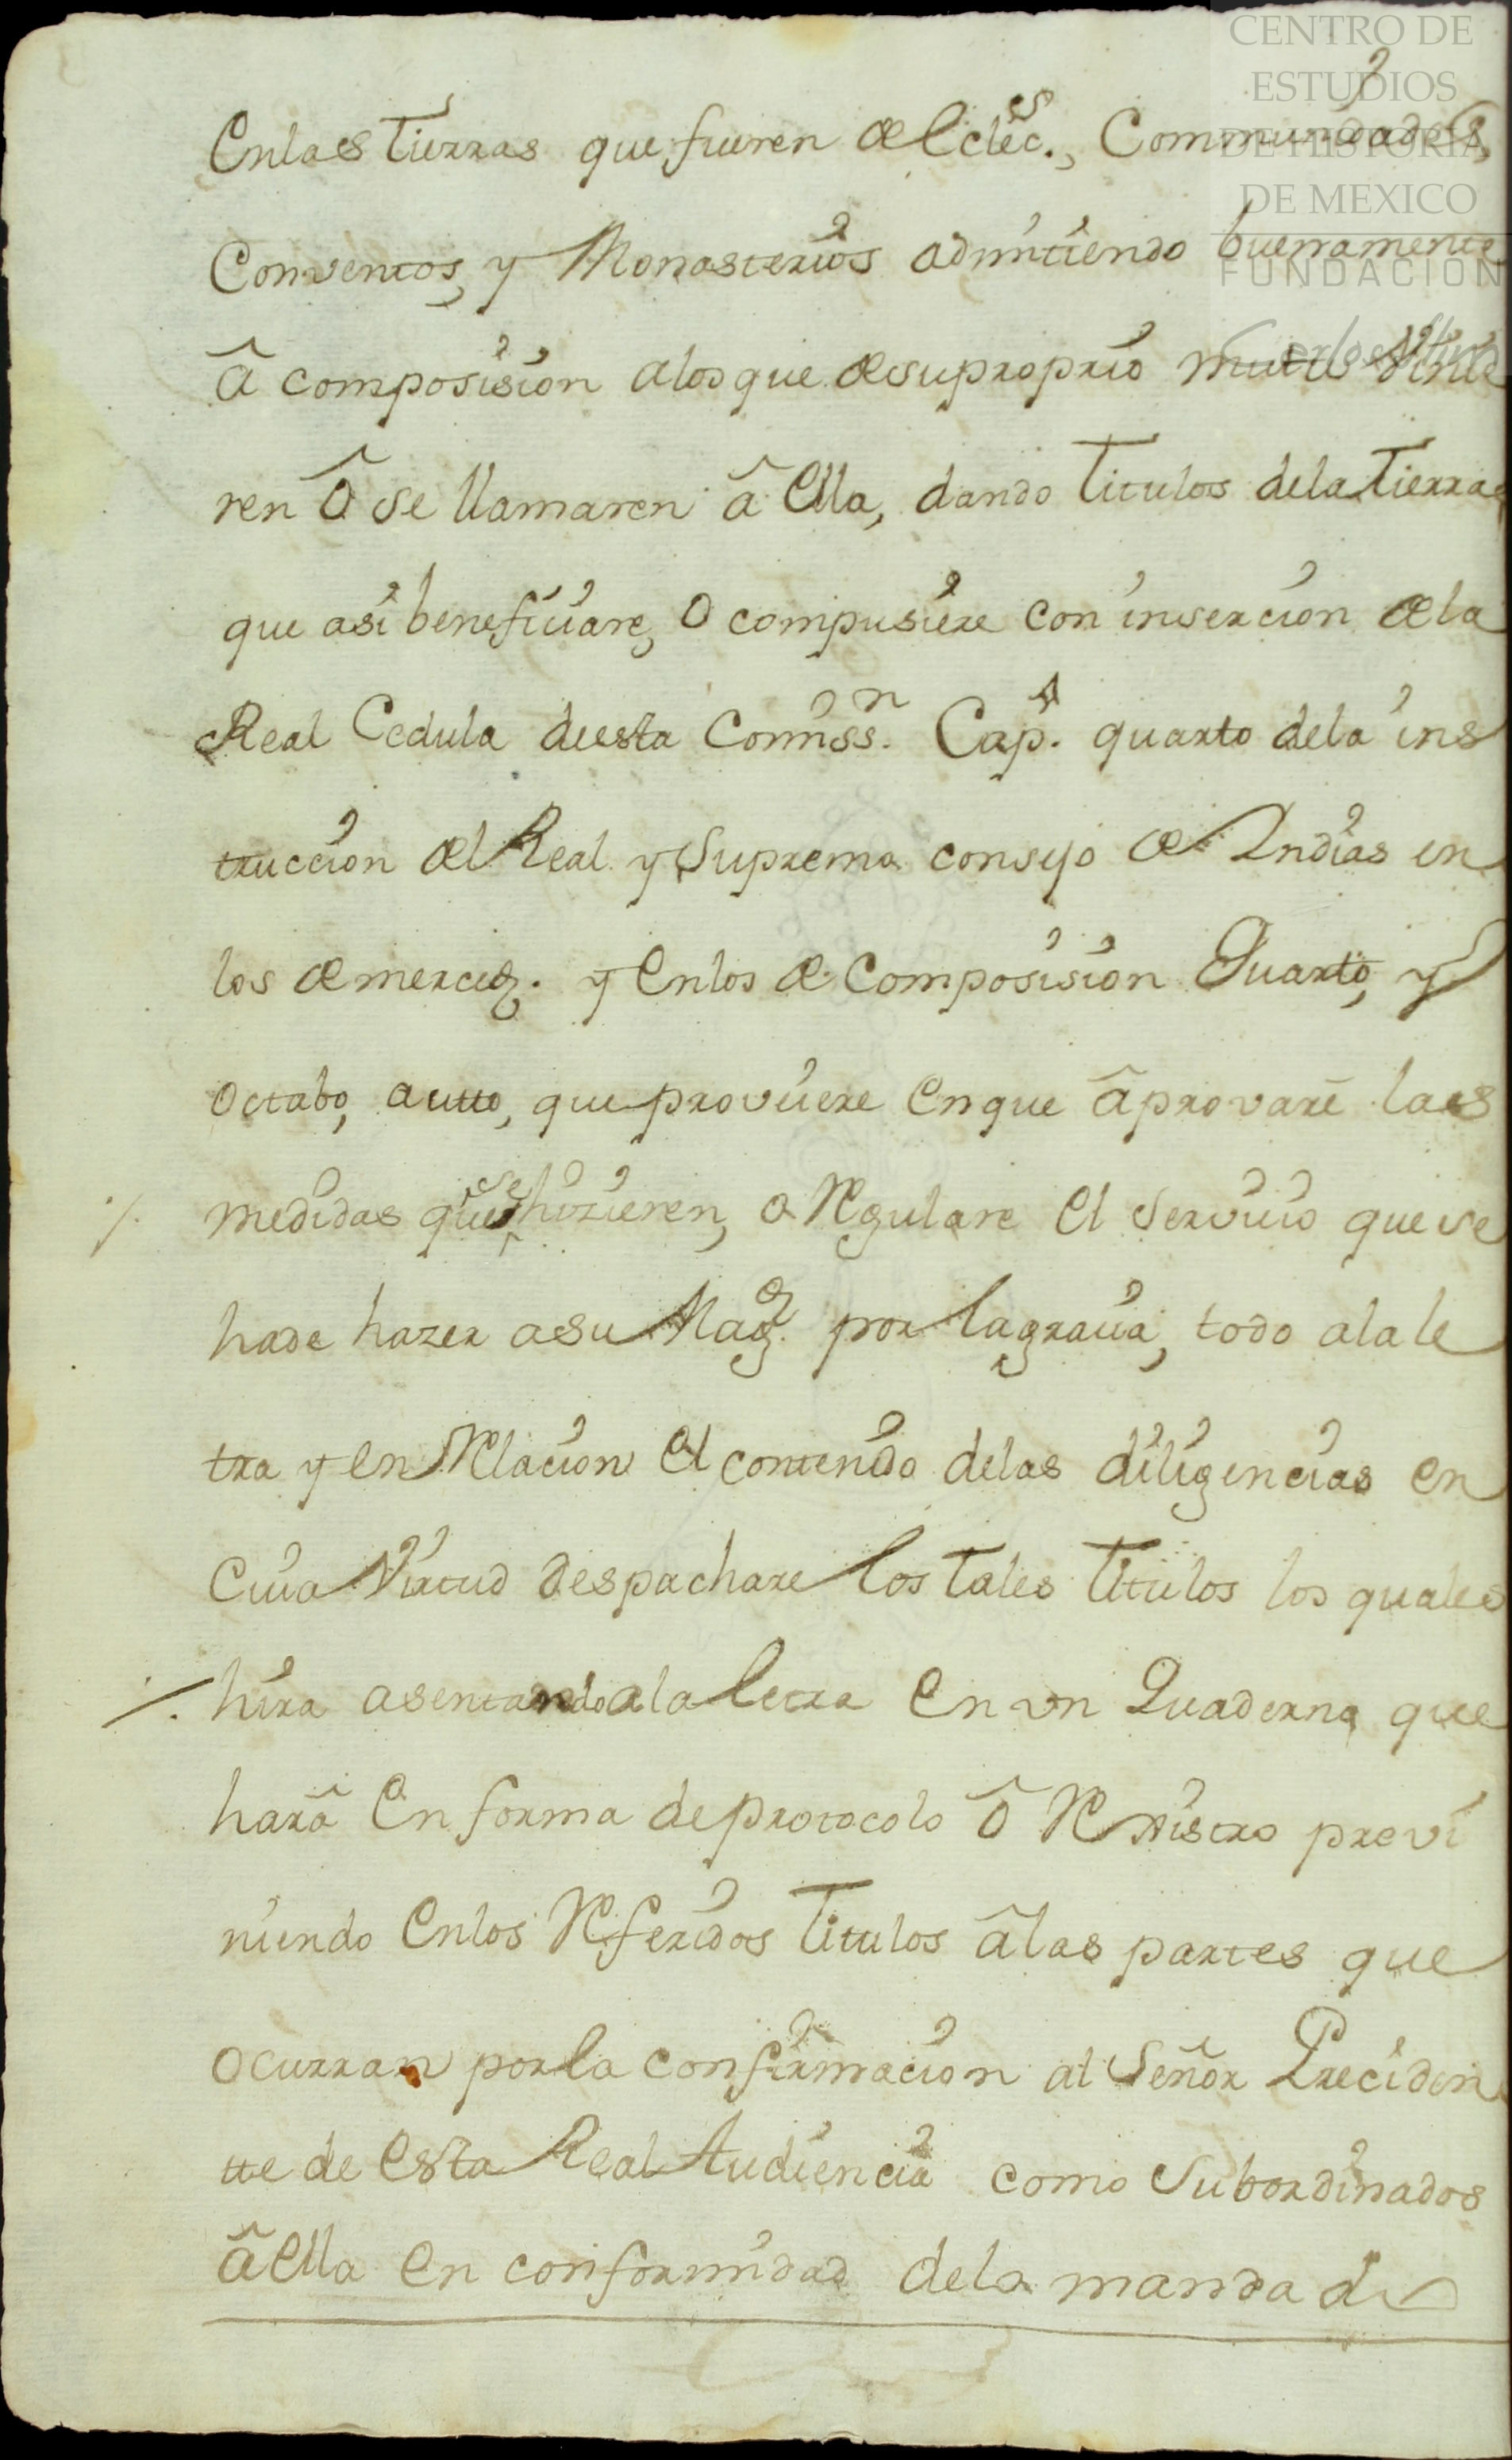 CENTRO DE
ESTUDIOS
DE HISTORIA
DE MEXICO
FUNDACION
Enlas Tierras que fueren de Eclec.es, Communidades,
Conventos, y Monasterios admitiendo buenamente
â composision alos que de su proprio motus vinie
ren ô se llamaren â Ella, dando Titulos dela Tierras
que asi beneficiare, o compusiere con insercion de la
Real Cedula de esta Comiss.n Cap.o quarto dela ins
truccion del Real y Supremo consejo de Indias en
los de merced. y Enlos de Composision Quarto, y
Octabo, autto, que proveiere En que âprovare las
medidas que se hizieren, o Regulare El Servicio que se
ha de hazer a su Mag.d por la gracia, todo ala le
tra y en Relacion El contenido delas diligencias en
Cuia Virtud despachare los Tales Titulos los quales
hira asentando ala letra En un Quaderno que
harâ En forma de protocolo ô Registro previ
niendo Enlos Referidos Titulos âlas partes que
Ocurran por la confirmacion al Señor Preciden
tte de Esta Real Audiencia como Subordinados
â Ella En conformidad dela manda de